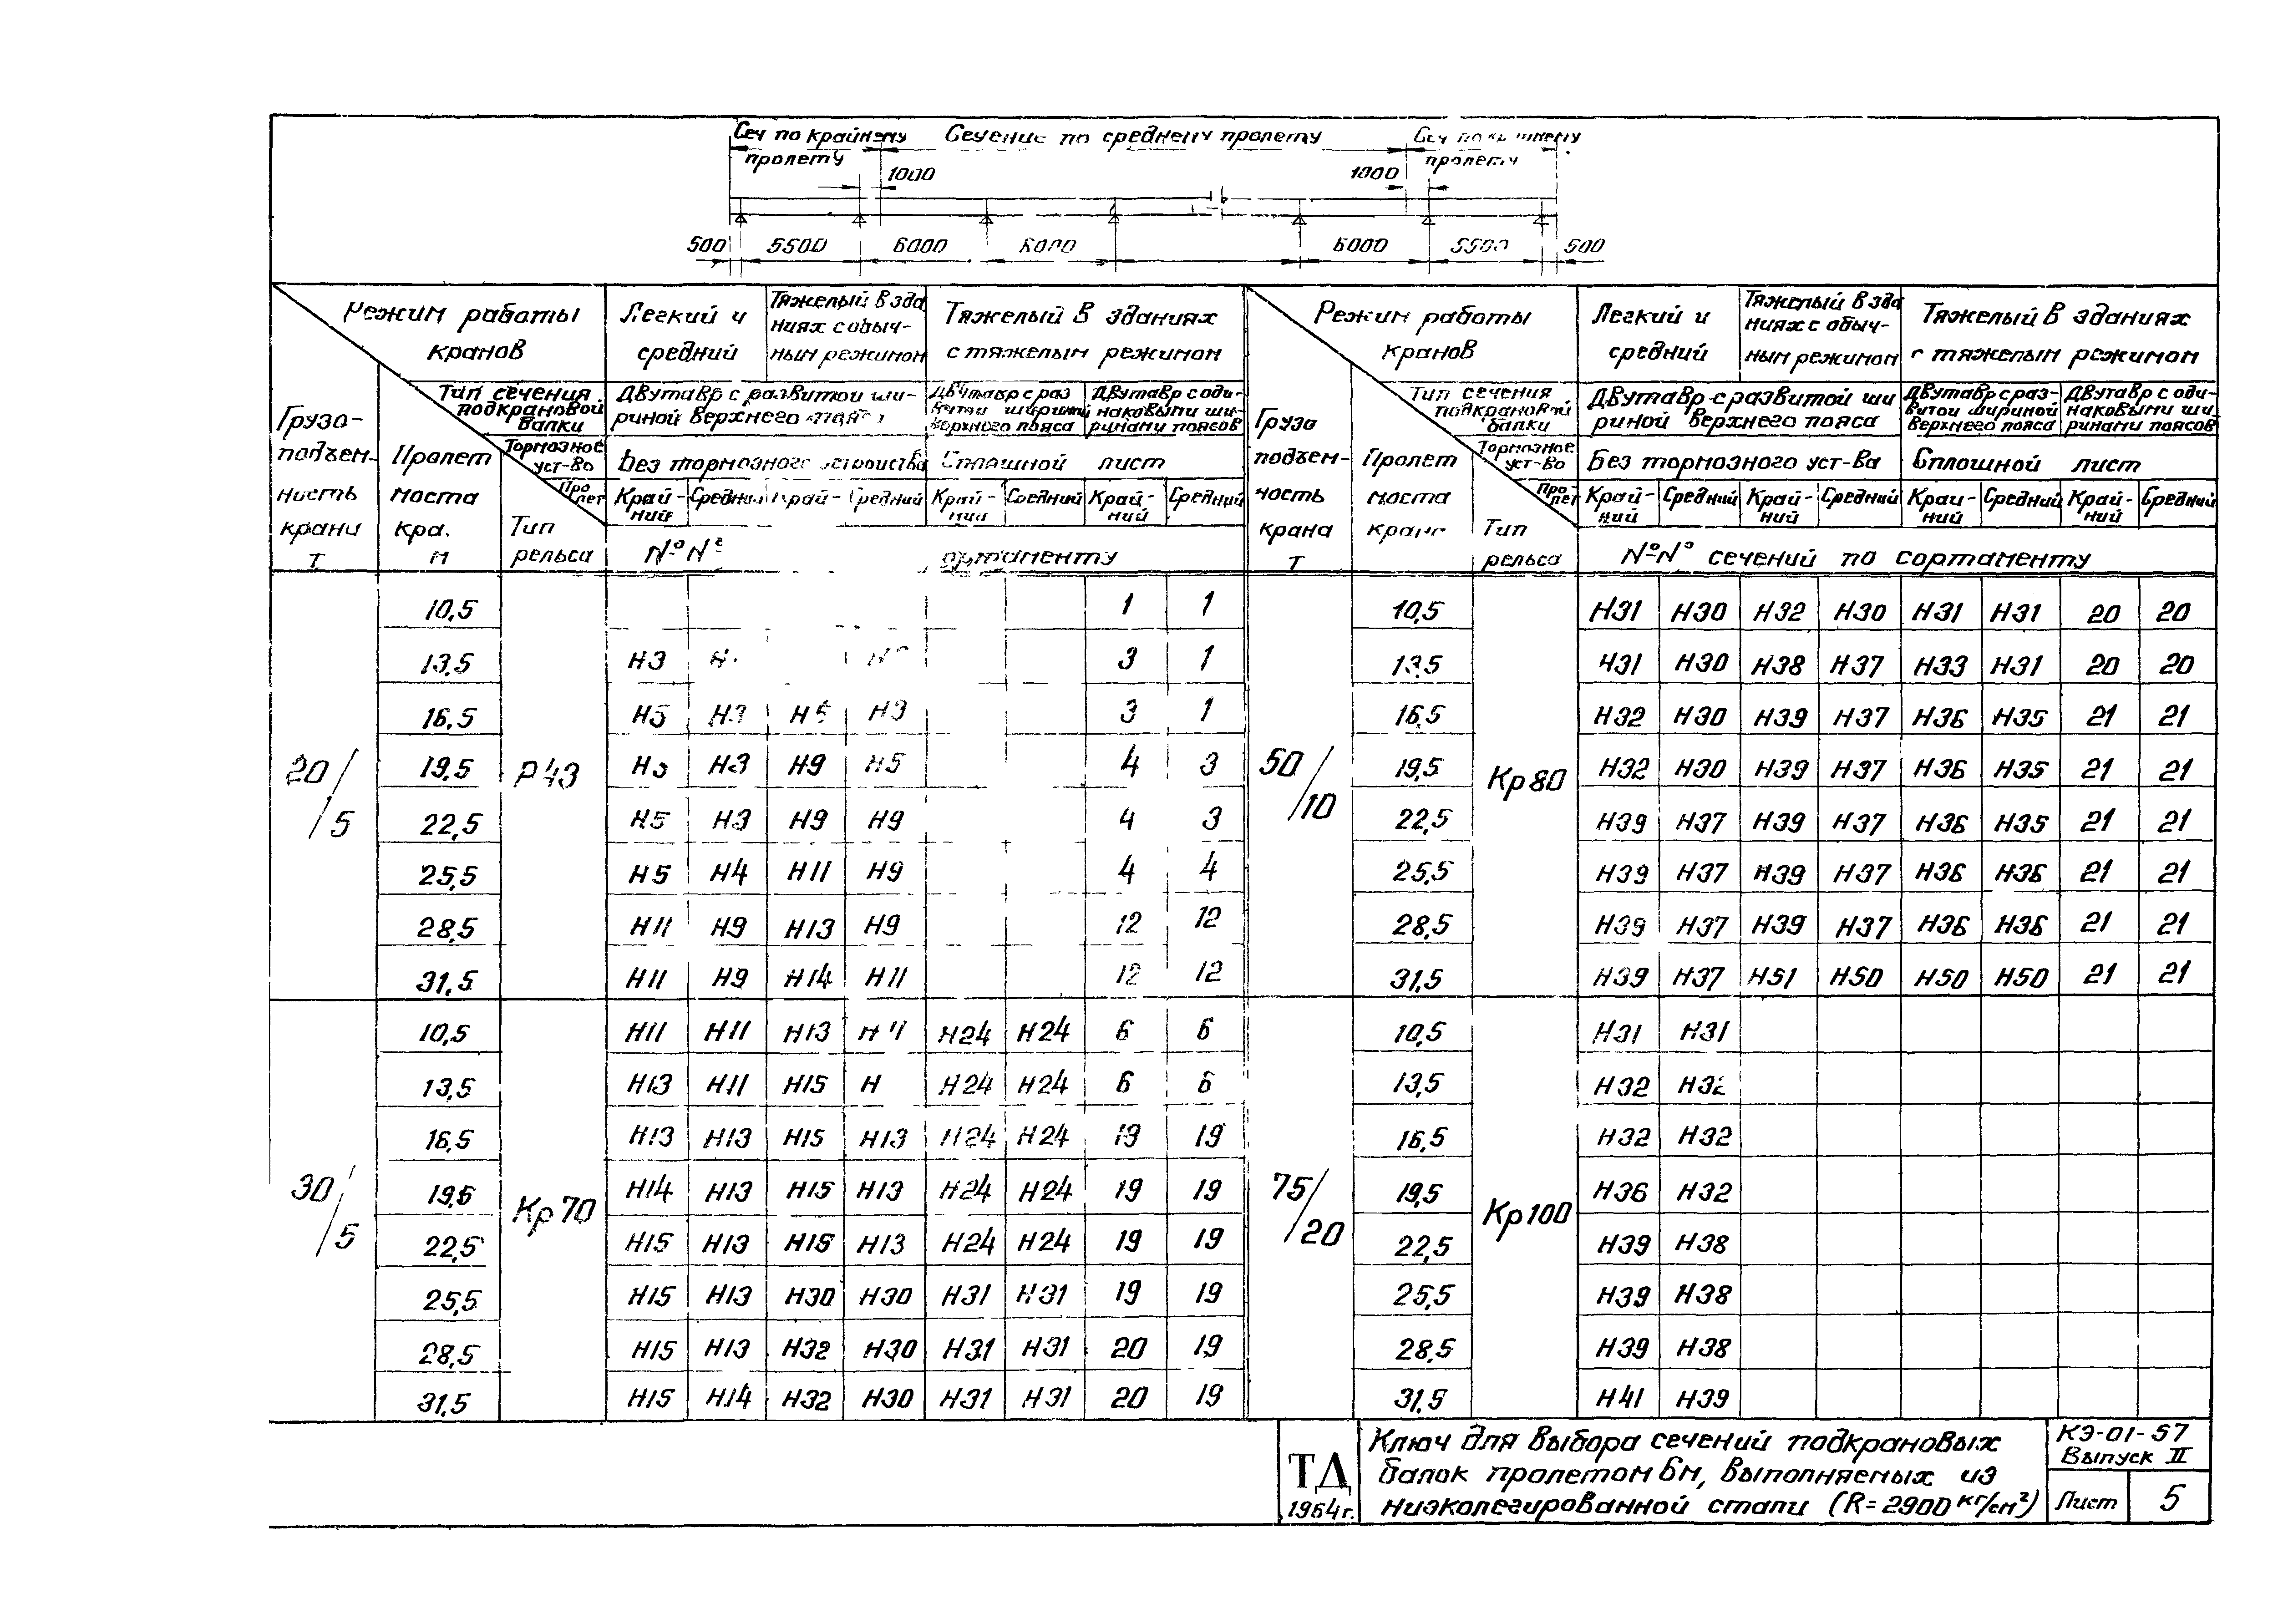 Сеч по крайнему Сечение по среднему пролету Сеч по крайнему
пролету пролету
1000 1000
500 5500 6000 6000 6000 5500 500
Режим работы кранов
Легкий и средний
Тяжелый в зда
ниях с обыч-
ным режимом
Тяжелый в зданиях
с тяжелым режимом
Тип сечения
подкрановой
балки
Двутавр с развитой ши-
риной верхнего пояса
Двутавр с раз
витой шириной
верхнего пояса
Двутавр с оди-
наковыми ши-
ринами поясов
Грузо-
подъем-
ность
крана
т
Пролет
моста
кра.
м
Тормозное
уст-во
Без тормозного устройства
Сплошной лист
Про
лет
Край-
ний
Средний
Край-
Средний
Край-
ний
Средний
Край-
ний
Средний
Тип
рельса
№№
сортаменту
20/5
Р43
10,5 1 1
13,5 Н3 3 1
16,5 Н5 Н3 Н5 Н3 3 1
19,5 Н3 Н9 Н5 4 3
22,5 Н5 Н3 Н9 Н9 4 3
25,5 Н5 Н4 Н11 Н9 4 4
28,5 Н11 Н9 Н13 Н9 12 12
31,5 Н11 Н9 Н14 Н11 12 12
30/5
Кр70
10,5 Н11 Н11 Н13 Н24 Н24 6 6
13,5 Н13 Н11 Н15 Н Н24 Н24 6 6
16,5 Н13 Н13 Н15 Н13 Н24 Н24 19 19
19,5 Н14 Н13 Н15 Н13 Н24 Н24 19 19
22,5 Н15 Н13 Н15 Н13 Н24 Н24 19 19
25,5 Н15 Н13 Н30 Н30 Н31 Н31 19 19
28,5 Н15 Н13 Н32 Н30 Н31 Н31 20 19
31,5 Н15 Н14 Н32 Н30 Н31 Н31 20 19
Режим работы
кранов
Легкий и
средний
Тяжелый в зда
ниях с обыч-
ным режимом
Тяжелый в зданиях
с тяжелым режимом
Тип сечения
подкрановой
балки
Двутавр с развитой ши
риной верхнего пояса
Двутавр с раз-
витой шириной
верхнего пояса
Двутавр с оди-
наковыми ши-
ринами поясов
Грузо
подъем-
ность
крана
т
Пролет
моста
крана
Тормозное
уст-во
Без тормозного уст-ва
Сплошной лист
Про-
лет
Край-
ний
Средний
Край-
ний
Средний
Край-
ний
Средний
Край-
ний
Средний
Тип
рельса
№№ сечений по сортаменту
50/10
Кр80
10,5 Н31 Н30 Н32 Н30 Н31 Н31 20 20
13,5 Н31 Н30 Н38 Н37 Н33 Н31 20 20
16,5 Н32 Н30 Н39 Н37 Н36 Н35 21 21
19,5 Н32 Н30 Н39 Н37 Н36 Н35 21 21
22,5 Н39 Н37 Н39 Н37 Н36 Н35 21 21
25,5 Н39 Н37 Н39 Н37 Н36 Н36 21 21
28,5 Н39 Н37 Н39 Н37 Н36 Н36 21 21
31,5 Н39 Н37 Н51 Н50 Н50 Н50 21 21
75/20
Кр100
10,5 Н31 Н31
13,5 Н32 Н32
16,5 Н32 Н32
19,5 Н36 Н32
22,5 Н39 Н38
25,5 Н39 Н38
28,5 Н39 Н38
31,5 Н41 Н39
ТД
1964г.
Ключ для выбора сечений подкрановых
балок пролетом 6м, выполняемых из
низколегированной стали (R=2900 кг/см²)
КЭ-01-57
Выпуск II
Лист 5